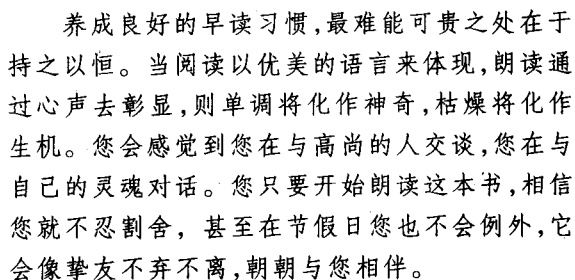 养成良好的早读习惯,最难能可贵之处在于
持之以恒。当阅读以优美的语言来体现,朗读通
过心声去彰显,则单调将化作神奇,枯燥将化作
生机。您会感觉到您在与高尚的人交谈,您在与
自己的灵魂对话。您只要开始朗读这本书,相信
您就不忍割舍，甚至在节假日您也不会例外,它
会像挚友不弃不离,朝朝与您相伴。